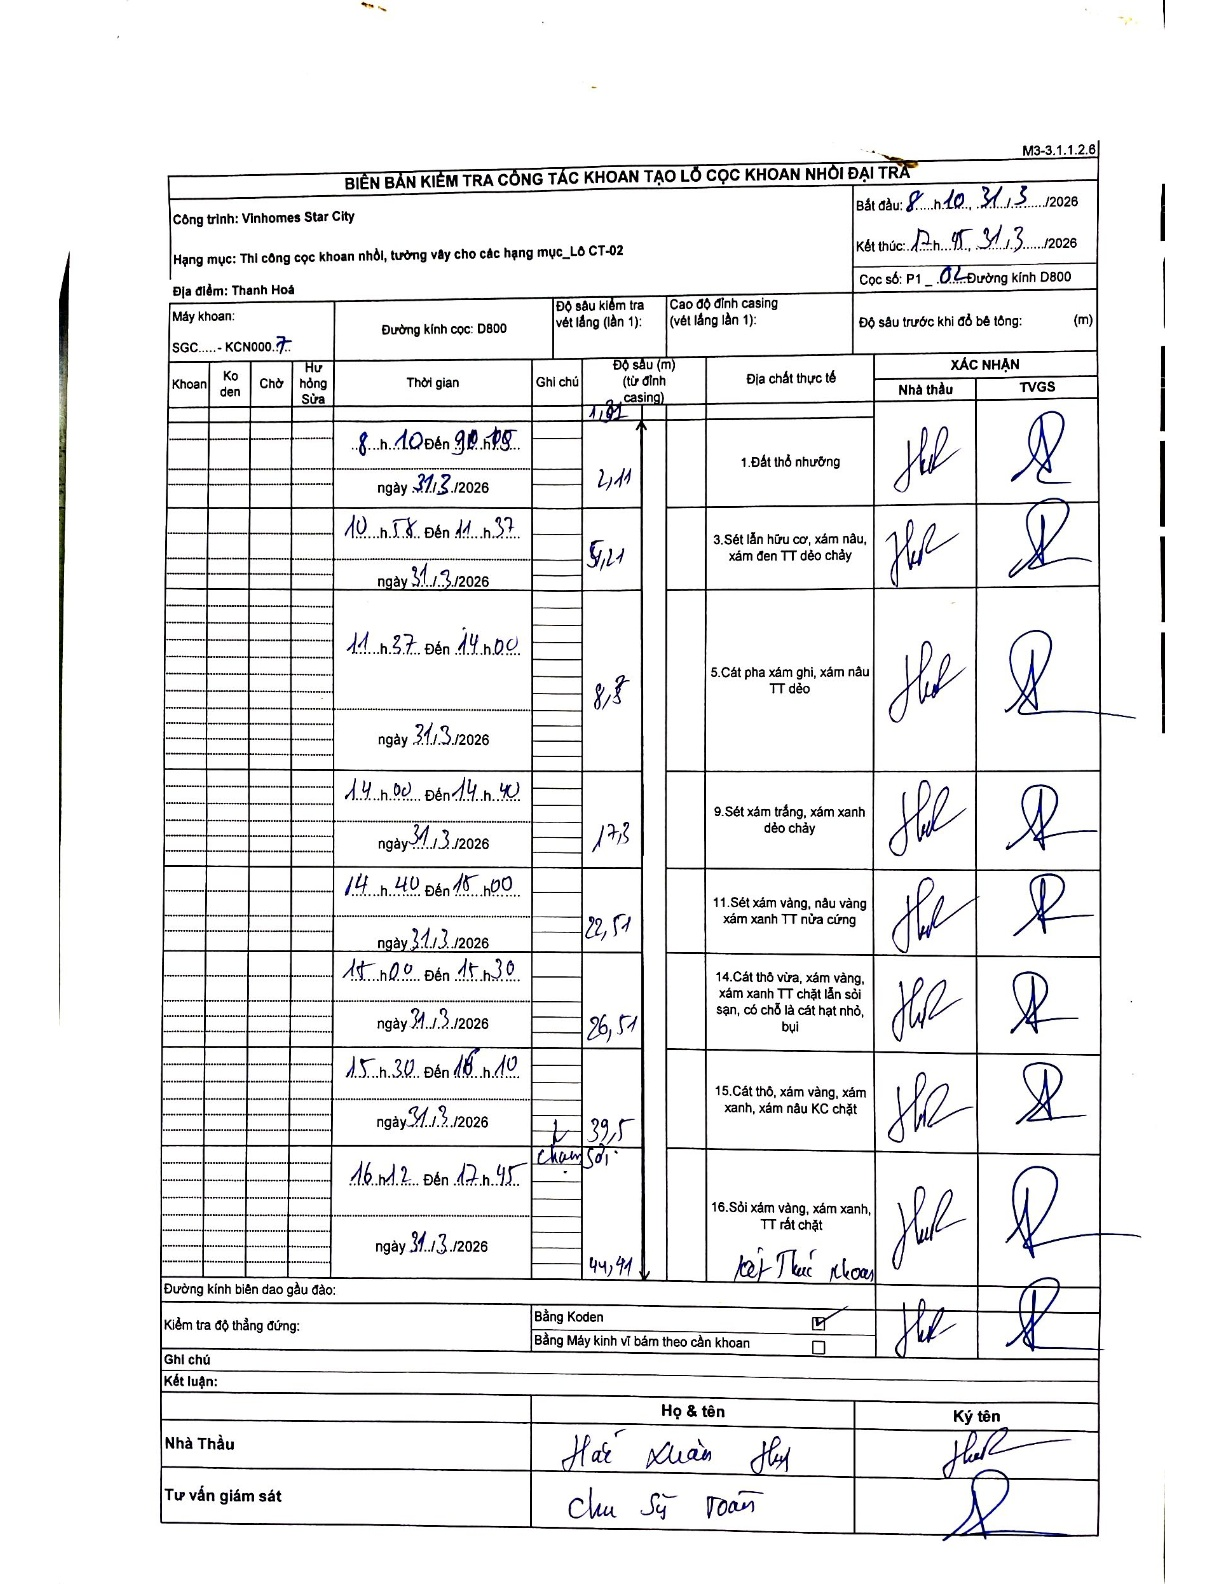 M3-3.1.1.2.6
BIÊN BẢN KIỂM TRA CÔNG TÁC KHOAN TẠO LỖ CỌC KHOAN NHỒI ĐẠI TRÀ
Công trình: Vinhomes Star City
Bắt đầu: 8 h 10, 31/3/2026
Hạng mục: Thi công cọc khoan nhồi, tường vây cho các hạng mục_Lô CT-02
Kết thúc: 17h 45, 31/3/2026
Địa điểm: Thanh Hoá
Cọc số: P1 _ 02 Đường kính D800
Máy khoan:
SGC.....- KCN000..7..
Đường kính cọc: D800
Độ sâu kiểm tra vét lắng (lần 1):
Cao độ đỉnh casing (vét lắng lần 1):
Độ sâu trước khi đổ bê tông: (m)
Khoan
Ko den
Chờ
Hư hỏng Sửa
Thời gian
Ghi chú
Độ sâu (m) (từ đỉnh casing)
Địa chất thực tế
XÁC NHẬN
Nhà thầu
TVGS
8 h 10 Đến
ngày 31/3/2026
2,11
1.Đất thổ nhưỡng
10 h 58 Đến 11 h 37
ngày 31/3/2026
5,21
3.Sét lẫn hữu cơ, xám nâu,
xám đen TT dẻo chảy
11 h 37 Đến 14 h 00
ngày 31/3/2026
5.Cát pha xám ghi, xám nâu
TT dẻo
14 h 00 Đến 14 h 40
ngày 31/3/2026
17,3
9.Sét xám trắng, xám xanh
dẻo chảy
14 h 40 Đến 15 h 00
ngày 31/3/2026
22,51
11.Sét xám vàng, nâu vàng
xám xanh TT nửa cứng
15 h 00 Đến 15 h 30
ngày 31/3/2026
26,51
14.Cát thô vừa, xám vàng,
xám xanh TT chặt lẫn sỏi
sạn, có chỗ là cát hạt nhỏ,
bụi
15 h 30 Đến 16 h 10
ngày 31/3/2026
39,5
15.Cát thô, xám vàng, xám
xanh, xám nâu KC chặt
chạm sỏi
16 h 12 Đến 17 h 45
ngày 31/3/2026
44,91
16.Sỏi xám vàng, xám xanh,
TT rất chặt
Kết Thúc Khoan
Đường kính biên dao gầu đào:
Kiểm tra độ thẳng đứng:
Bằng Koden
Bằng Máy kinh vĩ bám theo cần khoan
Ghi chú
Kết luận:
Họ & tên
Ký tên
Nhà Thầu
Xuân
Tư vấn giám sát
Chu Sỹ Toàn